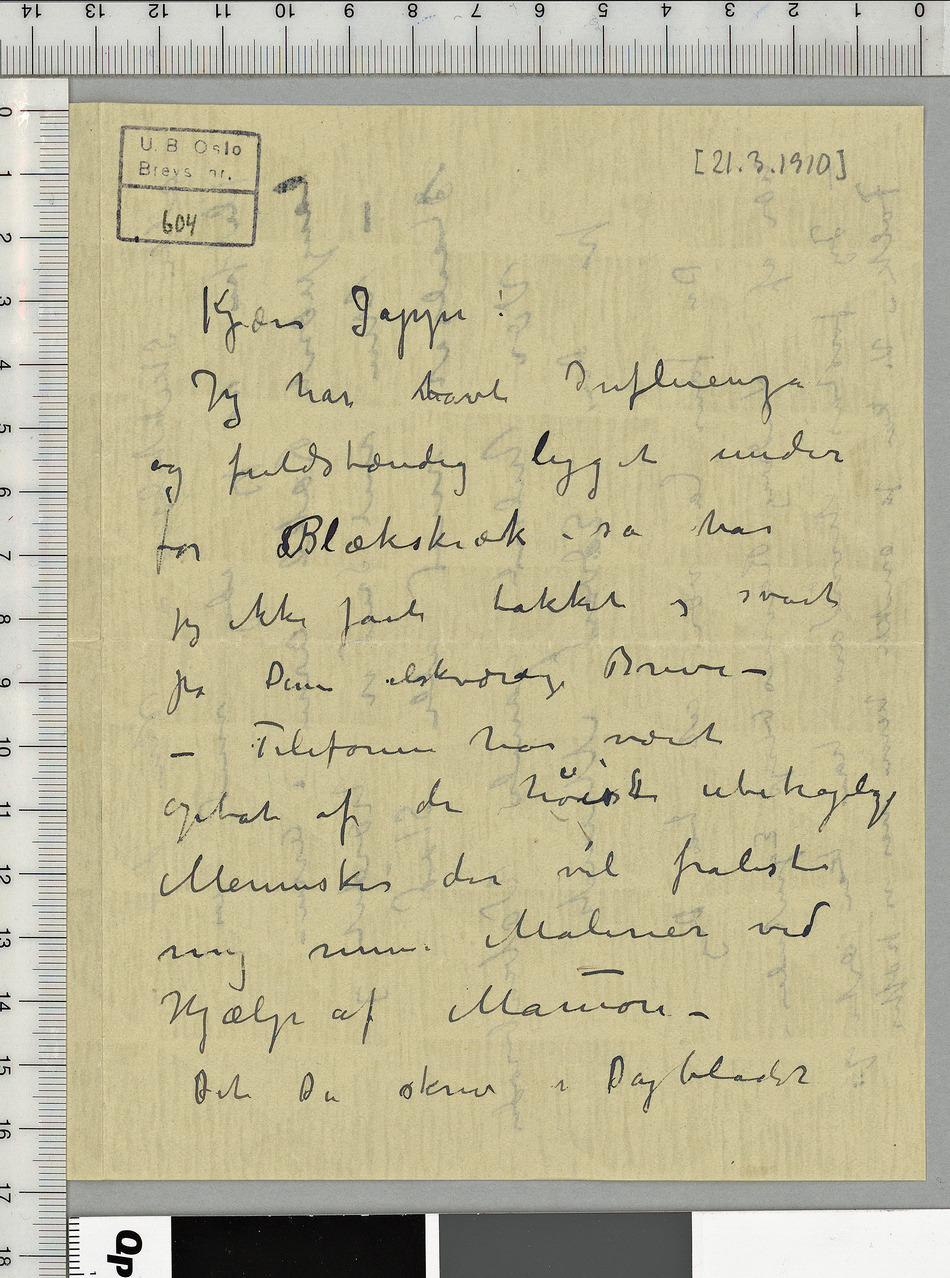 U. B. Oslo
Brevs. nr.
604
[21.3.1910]
Kjære Jappe!
Jeg har havt Influenza
og fuldstændig ligget under
for Blækskræk – så har
jeg ikke fået takket og svart
på Dine elskværdige Breve –
– Telefonen har vært
optat af de höist ubehagelige
Mennesker der vil fraliste
mig mine Malerier ved
Hjælp af Mamon –
Det Du skrev i Dagbladet